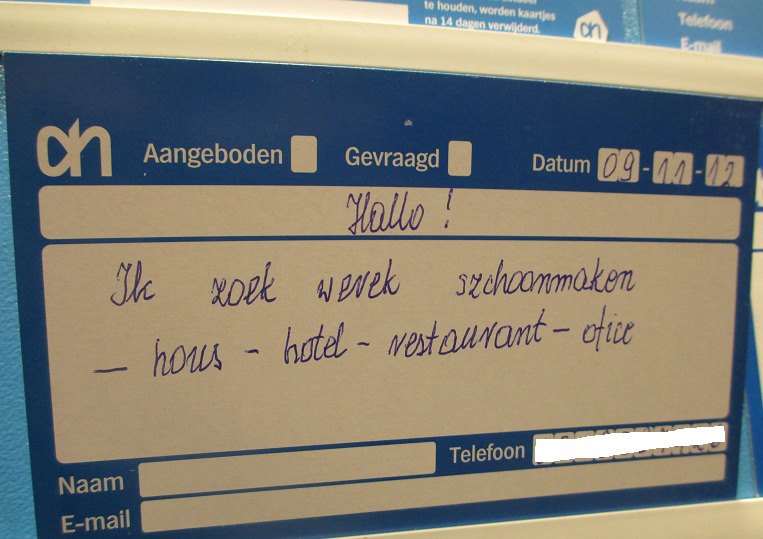 te houden, worden kaartjes
na 14 dagen verwijderd.
Telefoon
E-mail
ah Aangeboden Gevraagd Datum 09-11-12
Hallo!
Ik zoek werek szchoonmaken
- hous - hotel - restaurant - ofice
Telefoon
Naam
E-mail